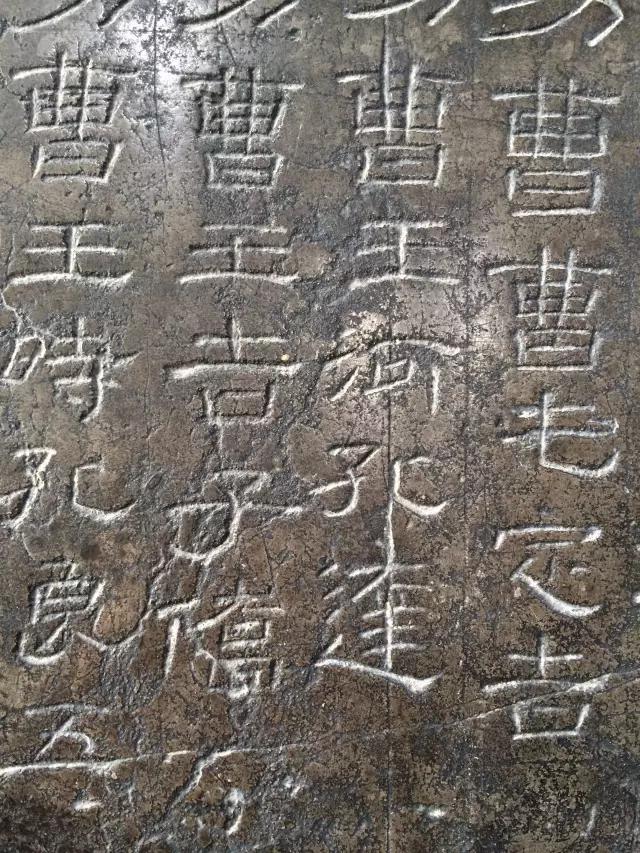 曹曹毛定吉
曹王河孔達
曹王吉子僑
曹王時孔良五